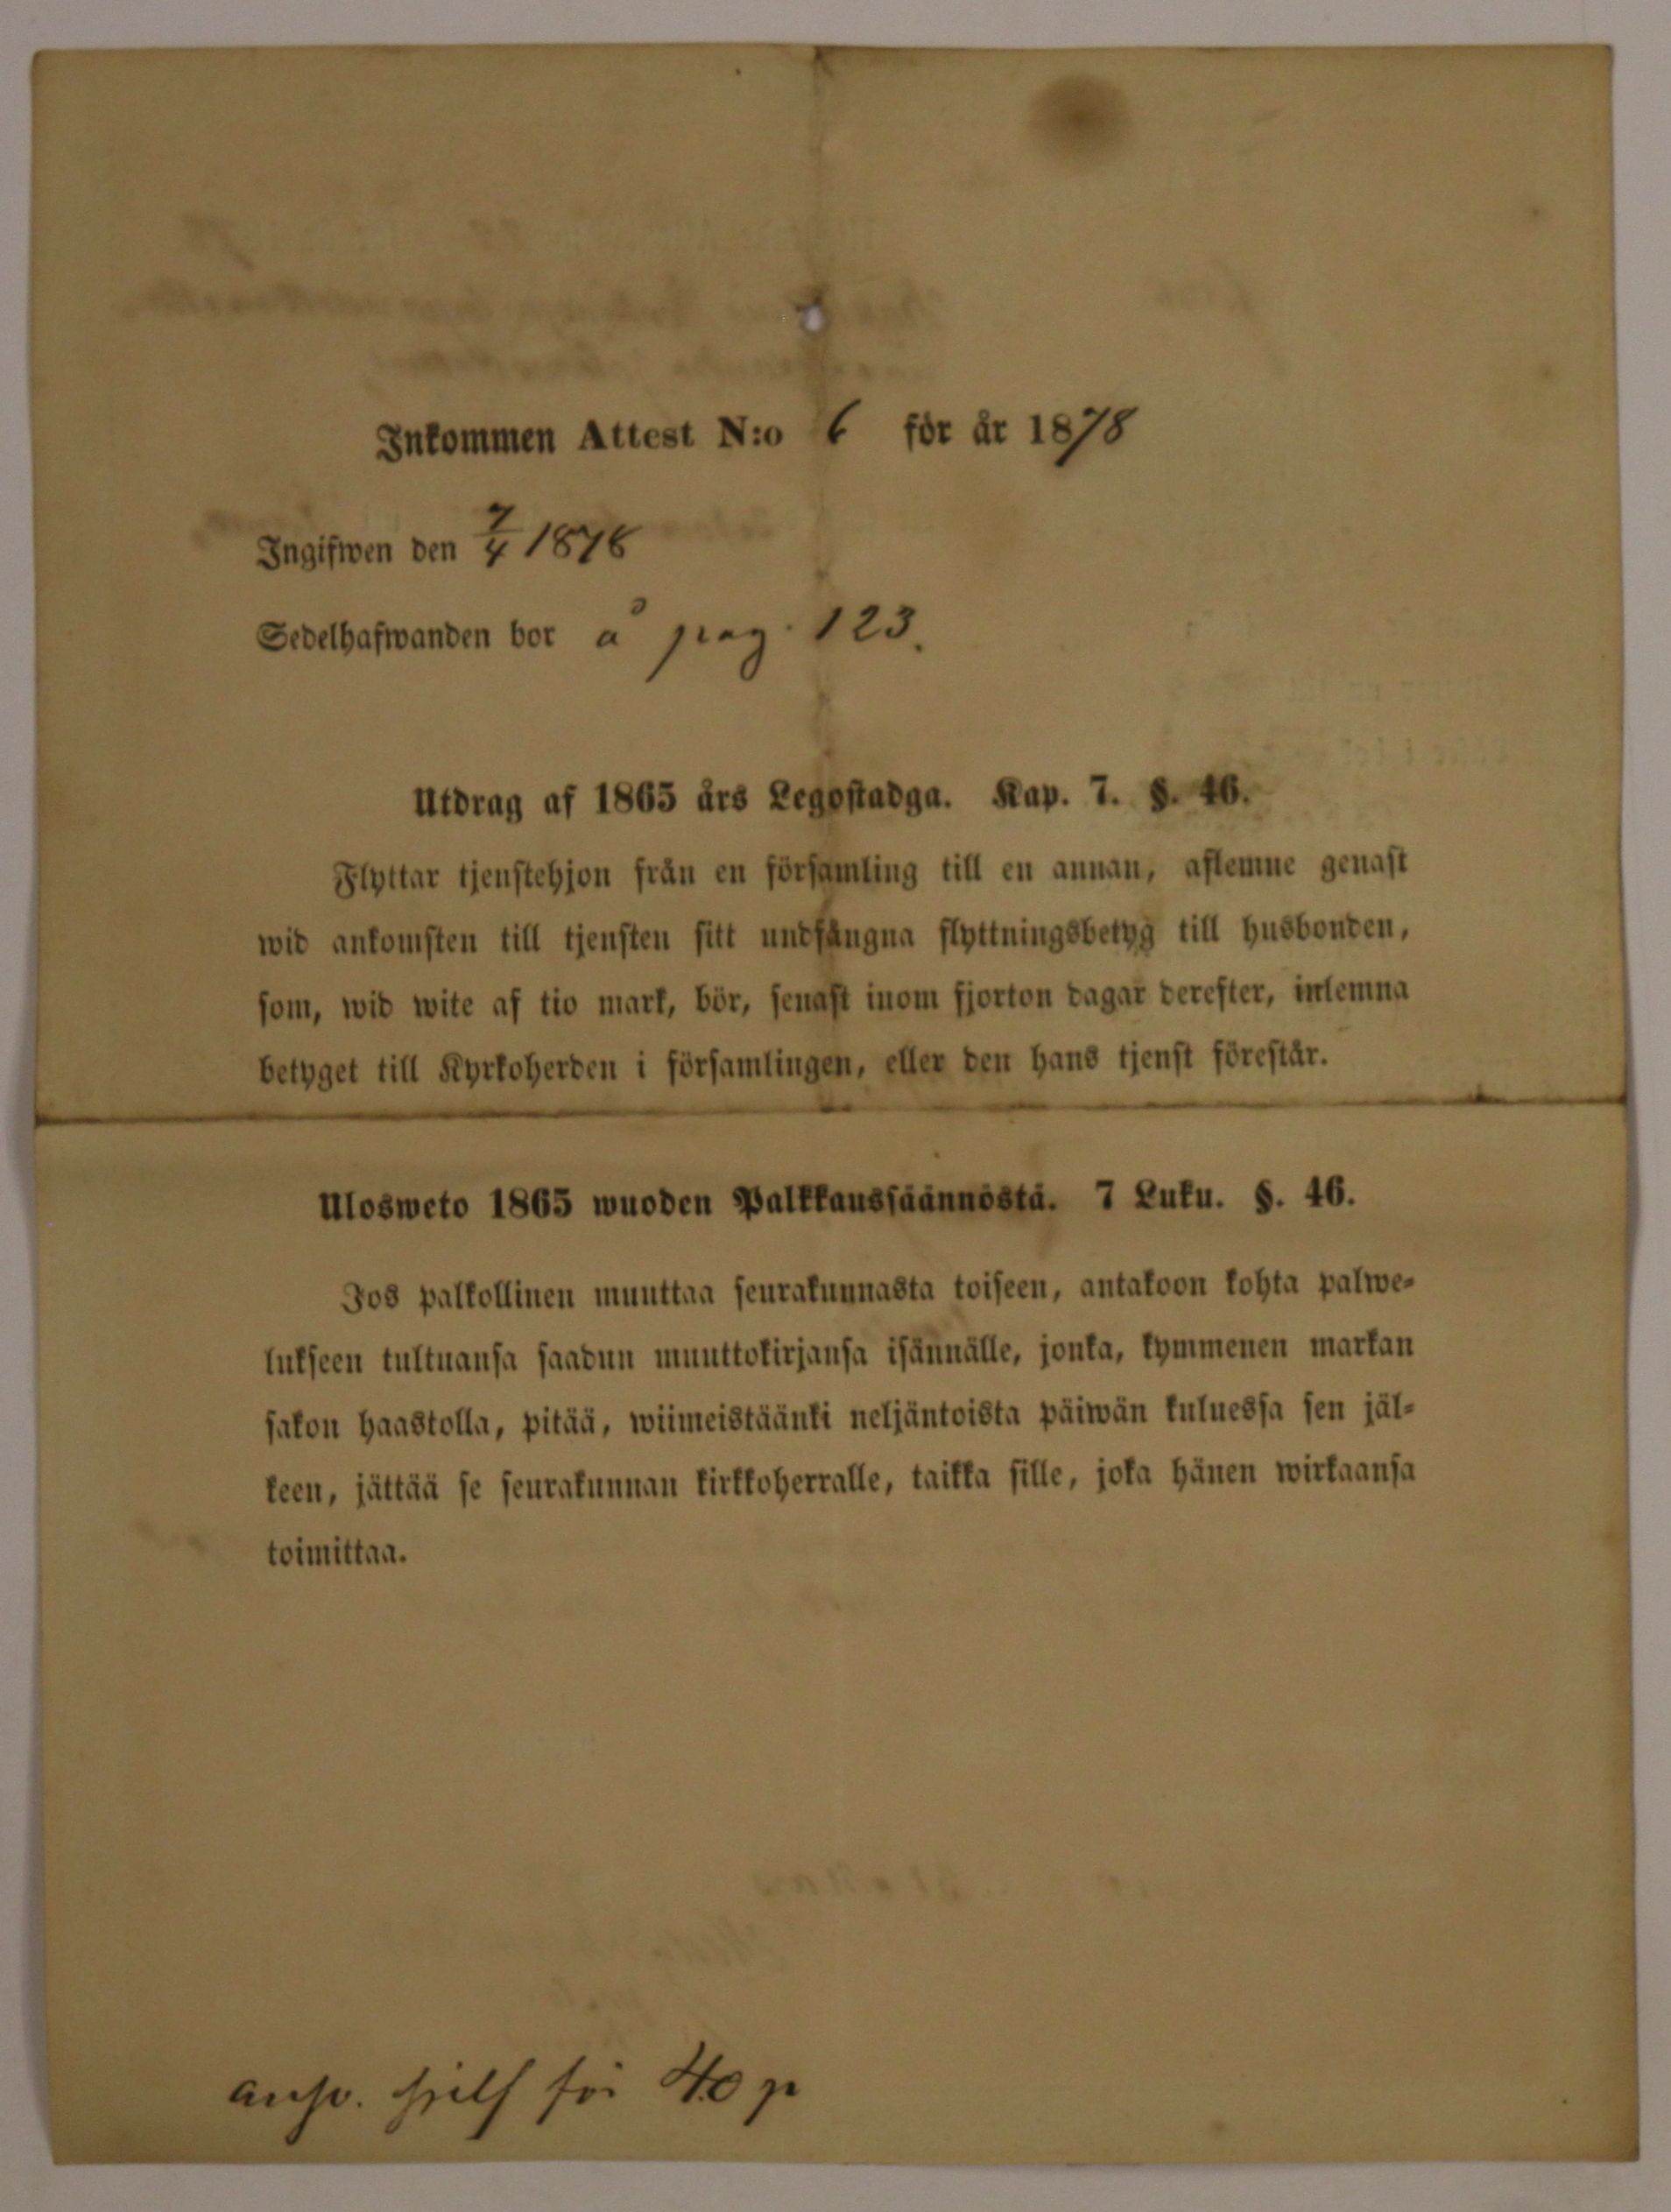 Inkommen Attest N:o 6 för år 1878
Ingifwen den 7/4 1878
Sedelhafwanden bor å pag. 123.
Utdrag af 1865 års Legostadga. Kap. 7. §. 46.
Flyttar tjenstehjon från en församling till en annan, aflemne genast
wid ankomsten till tjensten sitt undfångna flyttningsbetyg till husbonden,
som, wid wite af tio mark, bör, senast inom fjorton dagar derefter, inlemna
betyget till Kyrkoherden i församlingen, eller den hans tjenst förestår.
Ulosweto 1865 wuoden Palkkaussäännöstä. 7 Luku. §. 46.
Jos palkollinen muuttaa seurakunnasta toiseen, antakoon kohta palwe-
lukseen tultuansa saadun muuttokirjansa isännälle, jonka, kymmenen markan
sakon haastolla, pitää, wiimeistäänki neljäntoista päiwän kuluessa sen jäl-
keen, jättää se seurakunnan kirkkoherralle, taikka sille, joka hänen wirkaansa
toimittaa.
för 40 p